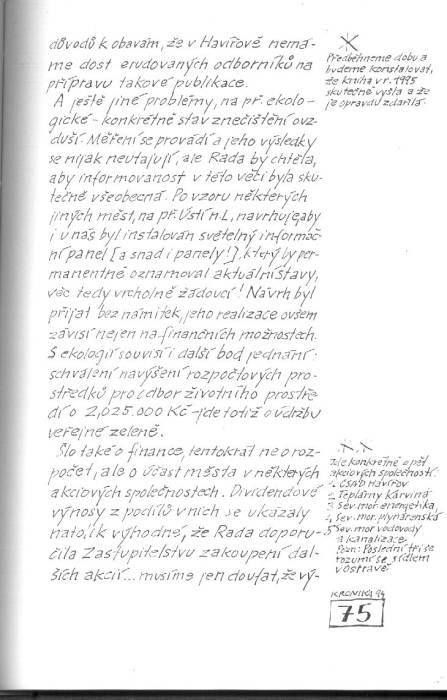 důvodů k obavám, že v Havířově nemá-
me dost erudovaných odborníků na
přípravu takové publikace.
A ještě jiné problémy, na př. ekolo-
gické - konkrétně stav znečištění ovz-
duší. Měření se provádí a jeho výsledky
se nijak neutajují, ale Rada by chtěla,
aby informovanost v této věci byla sku-
tečně všeobecná. Po vzoru některých
jiných měst, na př. Ústí n-L, navrhuje, aby
i u nás byl instalován světelný informač-
ní panel [a snad i panely!], který by per-
manentně oznamoval aktuální stavy,
věc tedy vrcholně žádoucí! Návrh byl
přijat bez námitek, jeho realizace ovšem
závisí nejen na finančních možnostech.
S ekologií souvisí i další bod jednání:
schválení navýšení rozpočtových pro-
středků pro odbor životního prostře-
dí o 2,025.000 Kč - jde totiž o údržbu
veřejné zeleně.
Šlo také o finance, tentokrát ne o roz-
počet, ale o účast města v některých
akciových společnostech. Dividendové
výnosy z podílů v nich se ukázaly
natolik výhodné, že Rada doporu-
čila Zastupitelstvu zakoupení dal-
ších akcií... musíme jen doufat, že vý-
Předběhneme dobu a
budeme konstatovat,
že kniha v r. 1995
skutečně vyšla a že
je opravdu zdařilá.
Jde konkrétně o pět
akciových společností:
1. ČSAD Havířov
2. Teplárny Karviná
3. Sev. mor. energetika
4. Sev. mor. plynárenská
5. Sev. mor. vodovody
a kanalizace
Pozn: Poslední tři se
rozumí se sídlem
v Ostravě
KRONIKA 94
75